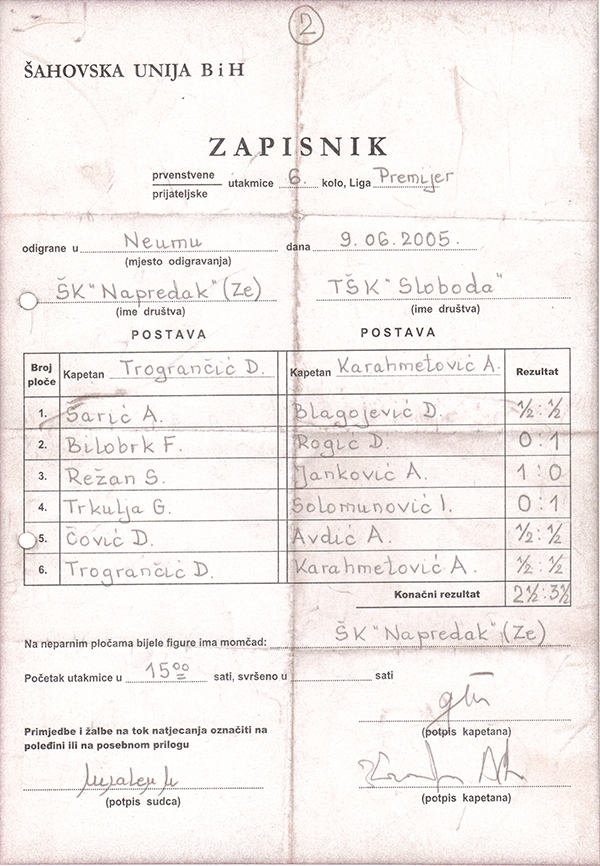 2
ŠAHOVSKA UNIJA BiH
ZAPISNIK
prvenstvene
prijateljske
utakmice 6. kolo, Liga Premijer
odigrane u Neumu dana 9.06.2005.
(mjesto odigravanja)
ŠK "Napredak" (Ze) TŠK "Sloboda"
(ime društva) (ime društva)
POSTAVA POSTAVA
Broj ploče Kapetan Trogrančić D. Kapetan Karahmetović A. Rezultat
1. Šarić A. Blagojević D. ½ : ½
2. Bilobrk F. Rogić D. 0 : 1
3. Režan S. Janković A. 1 : 0
4. Trkulja G. Solomunović I. 0 : 1
5. Čović D. Avdić A. ½ : ½
6. Trogrančić D. Karahmetović A. ½ : ½
Konačni rezultat 2½ : 3½
Na neparnim pločama bijele figure ima momčad: ŠK "Napredak" (Ze)
Početak utakmice u 15⁰⁰ sati, svršeno u sati
(potpis kapetana)
Primjedbe i žalbe na tok natjecanja označiti na
poleđini ili na posebnom prilogu
(potpis sudca) (potpis kapetana)